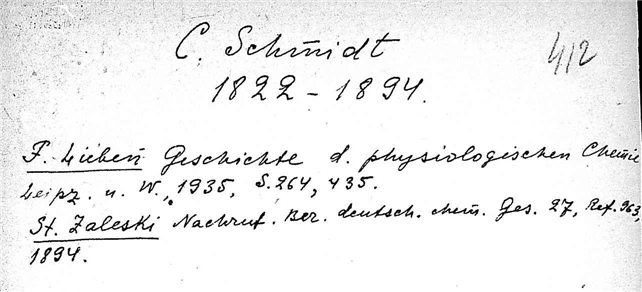 C. Schmidt
412
1822 - 1894.
F. Lieben Geschichte d. physiologischen Chemie
Leipz. u. W., 1935, S. 264, 435.
St. Zaleski Nachruf. Ber. deutsch. chem. Ges. 27, Ref. 963,
1894.